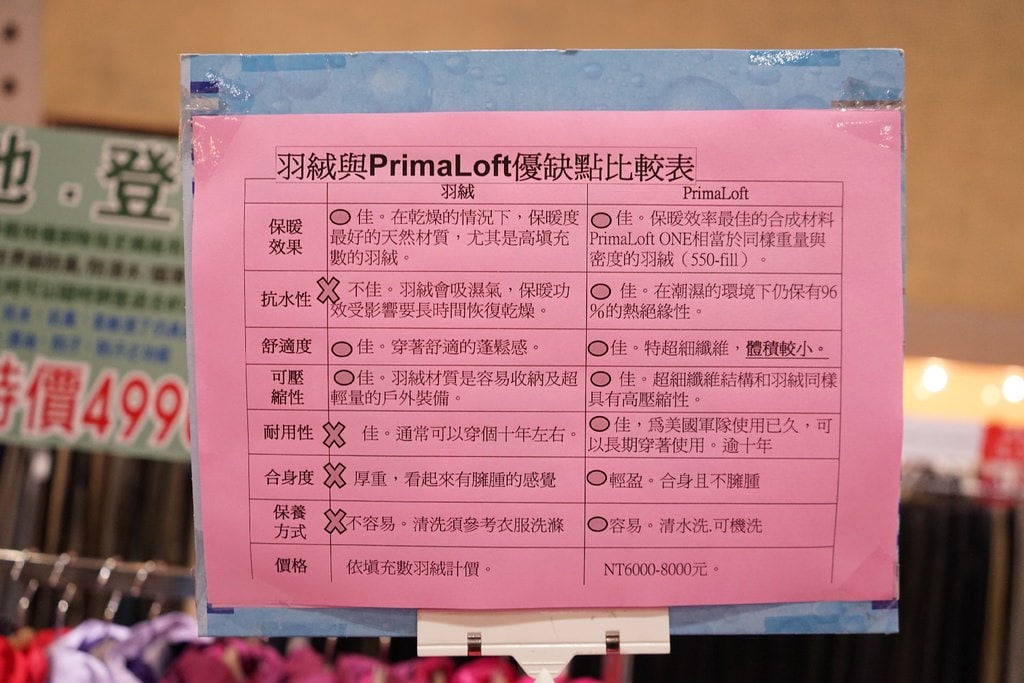 羽絨與PrimaLoft優缺點比較表
羽絨
PrimaLoft
保暖
效果
佳。在乾燥的情況下，保暖度
最好的天然材質，尤其是高填充
數的羽絨。
佳。保暖效率最佳的合成材料
PrimaLoft ONE相當於同樣重量與
密度的羽絨（550-fill）。
抗水性
不佳。羽絨會吸濕氣，保暖功
效受影響要長時間恢復乾燥。
佳。在潮濕的環境下仍保有96
%的熱絕緣性。
舒適度
佳。穿著舒適的蓬鬆感。
佳。特超細纖維，體積較小。
可壓
縮性
佳。羽絨材質是容易收納及超
輕量的戶外裝備。
佳。超細纖維結構和羽絨同樣
具有高壓縮性。
耐用性
佳。通常可以穿個十年左右。
佳，爲美國軍隊使用已久，可
以長期穿著使用。逾十年
合身度
厚重，看起來有臃腫的感覺
輕盈。合身且不臃腫
保養
方式
不容易。清洗須參考衣服洗滌
容易。清水洗.可機洗
價格
依填充數羽絨計價。
NT6000-8000元。
地．登
特價499